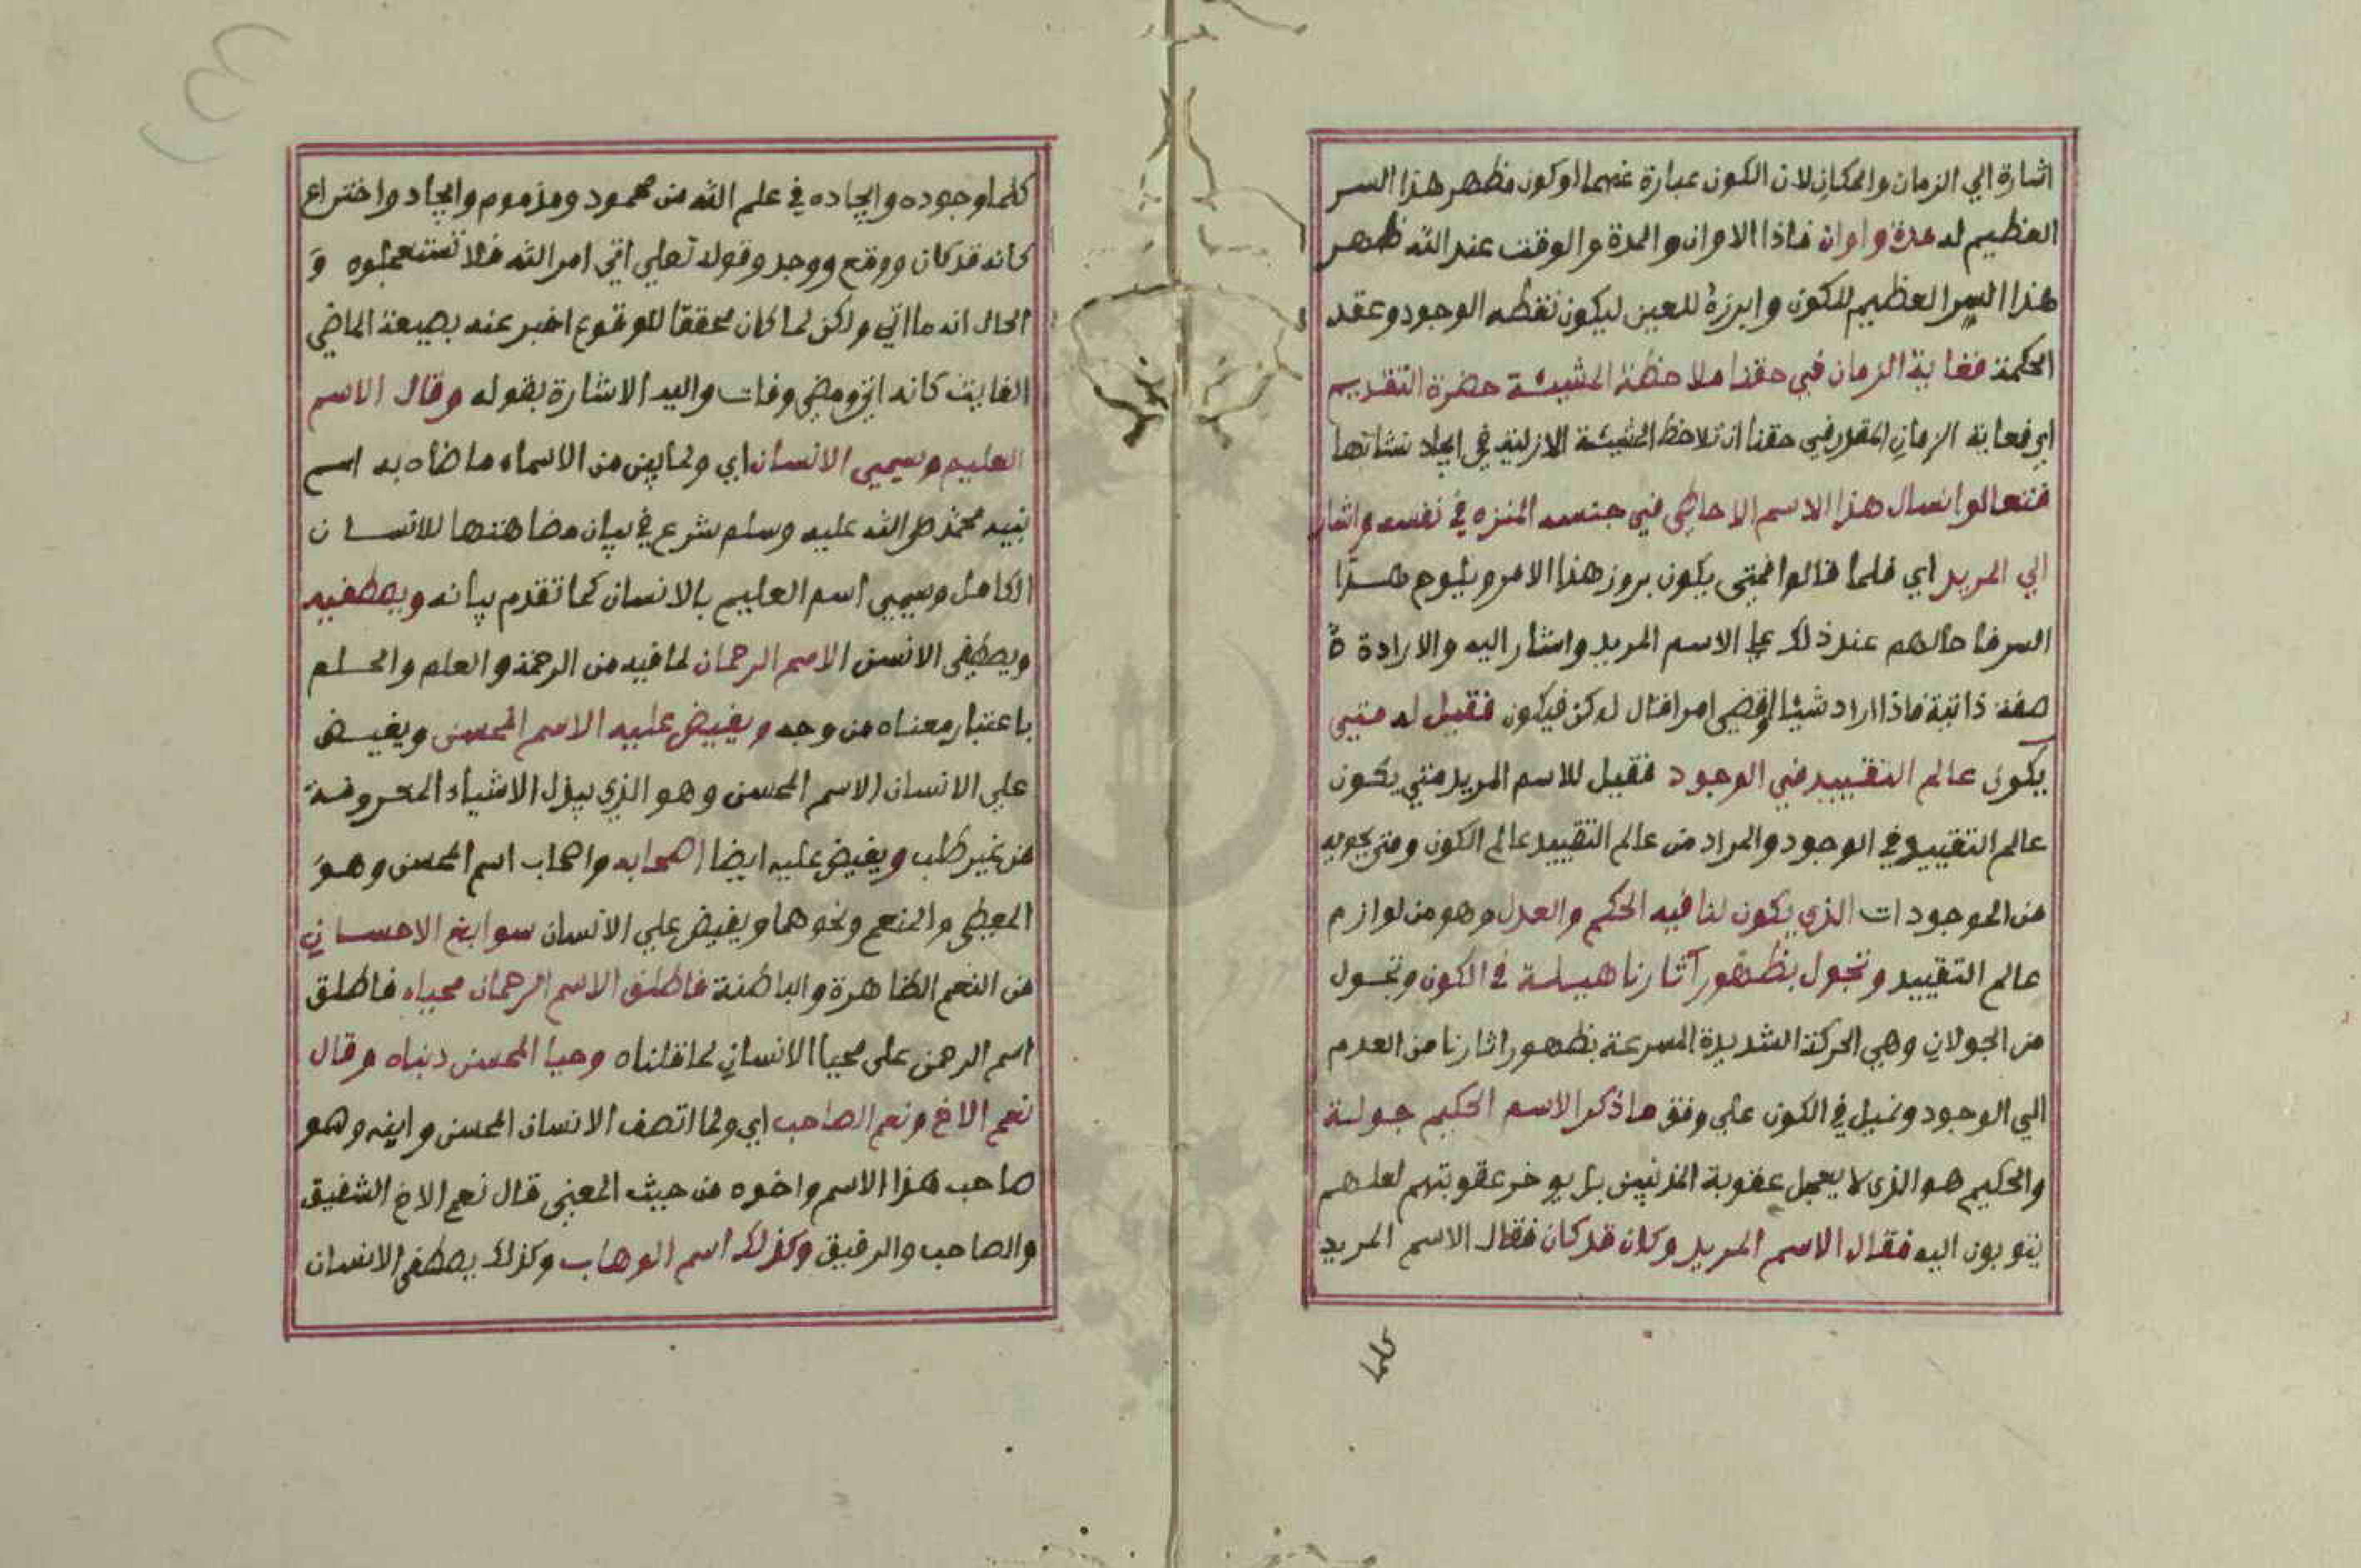 اشارة الي الزمان والمكان لان الكون عبارة عنهما او كون مظهر هذا السر
العظيم له مدة واوان فاذا الاوان والمدة والوقت عند الله ظهر
هذا السر العظيم للكون وابرزه للعين ليكون نقطه الوجود وعقد
الحكمة فغاية الزمان في حقنا ملاحظة المشيئة حضرة التقديم
اي فغاية الزمان المقدر في حقنا ان نلاحظ المشيئة الازلية في ايجاد نشاتها
فتعالوا نسال هذا الاسم الاحاطي في جنسه المنزه في نفسه واشار
الي المريد اي فلما قالوا فمتى يكون بروز هذا الامر ويلوح هذا
السر فاحالهم عند ذلك على الاسم المريد واشار اليه والارادة
صفة ذاتية فاذا اراد شيئا او قضى امرا قال له كن فيكون فقيل له متى
يكون عالم التقييد في الوجود فقيل للاسم المريد متي يكون
عالم التقييد في الوجود والمراد من عالم التقييد عالم الكون ومتى يحويه
من الموجودات الذي يكون لنا فيه الحكم والعدل وهو من لوازم
عالم التقييد ونجول بظهور آثارنا هيلة في الكون ونجول
من الجولان وهي الحركة الشديدة السرعة بظهور اثارنا من العدم
الي الوجود ونميل في الكون علي وفق ما ذكر الاسم الحكيم جولة
والحكيم هو الذي لا يعجل عقوبة المذنبين بل يوخر عقوبتهم لعلهم
يتوبون اليه فقال الاسم المريد وكان قد كان فقال الاسم المريد
كلما
كلما وجوده وايجاده في علم الله من محمود ومذموم وايجاد واختراع
كانه قد كان ووقع ووجد وقوله تعلي اتي امر الله فلا تستعجلوه و
الحال انه ما اتي ولكن لما كان محققا للوقوع اخبر عنه بصيغة الماضي
الغايت كانه اتي ومضي وفات واليه الاشارة بقوله وقال الاسم
العليم وسيمي الانسان اي ولما بين من الاسماء ما ضاه به اسم
نبيه محمد صلى الله عليه وسلم شرع في بيان مضاهتها للانسان
الكامل وسيمي اسم العليم بالانسان كما تقدم بيانه ويصطفيه
ويصطفي الانسن الاسم الرحمان لما فيه من الرحمة والعلم والحلم
باعتبار معناه من وجه ويفيض عليه الاسم المحسن ويفيض
علي الانسان الاسم المحسن وهو الذي يبذل الاشياء المعروفة
من غير طلب ويفيض عليه ايضا اصحابه واصحاب اسم المحسن وهو
المعطي والمنعم ونحوهما ويفيض علي الانسان سوابغ الاحسان
من النعم الظاهرة والباطنة فاطلق الاسم الرحمان محياه فاطلق
اسم الرحمن على محيا الانسان لما قلناه وحيا المحسن دنياه وقال
نعم الاخ ونعم الصاحب اي ولما اتصف الانسان المحسن وابنه وهو
صاحب هذا الاسم واخوه من حيث المعنى قال نعم الاخ الشفيق
والصاحب والرفيق وكذلك اسم الوهاب وكذلك يصطفي الانسان